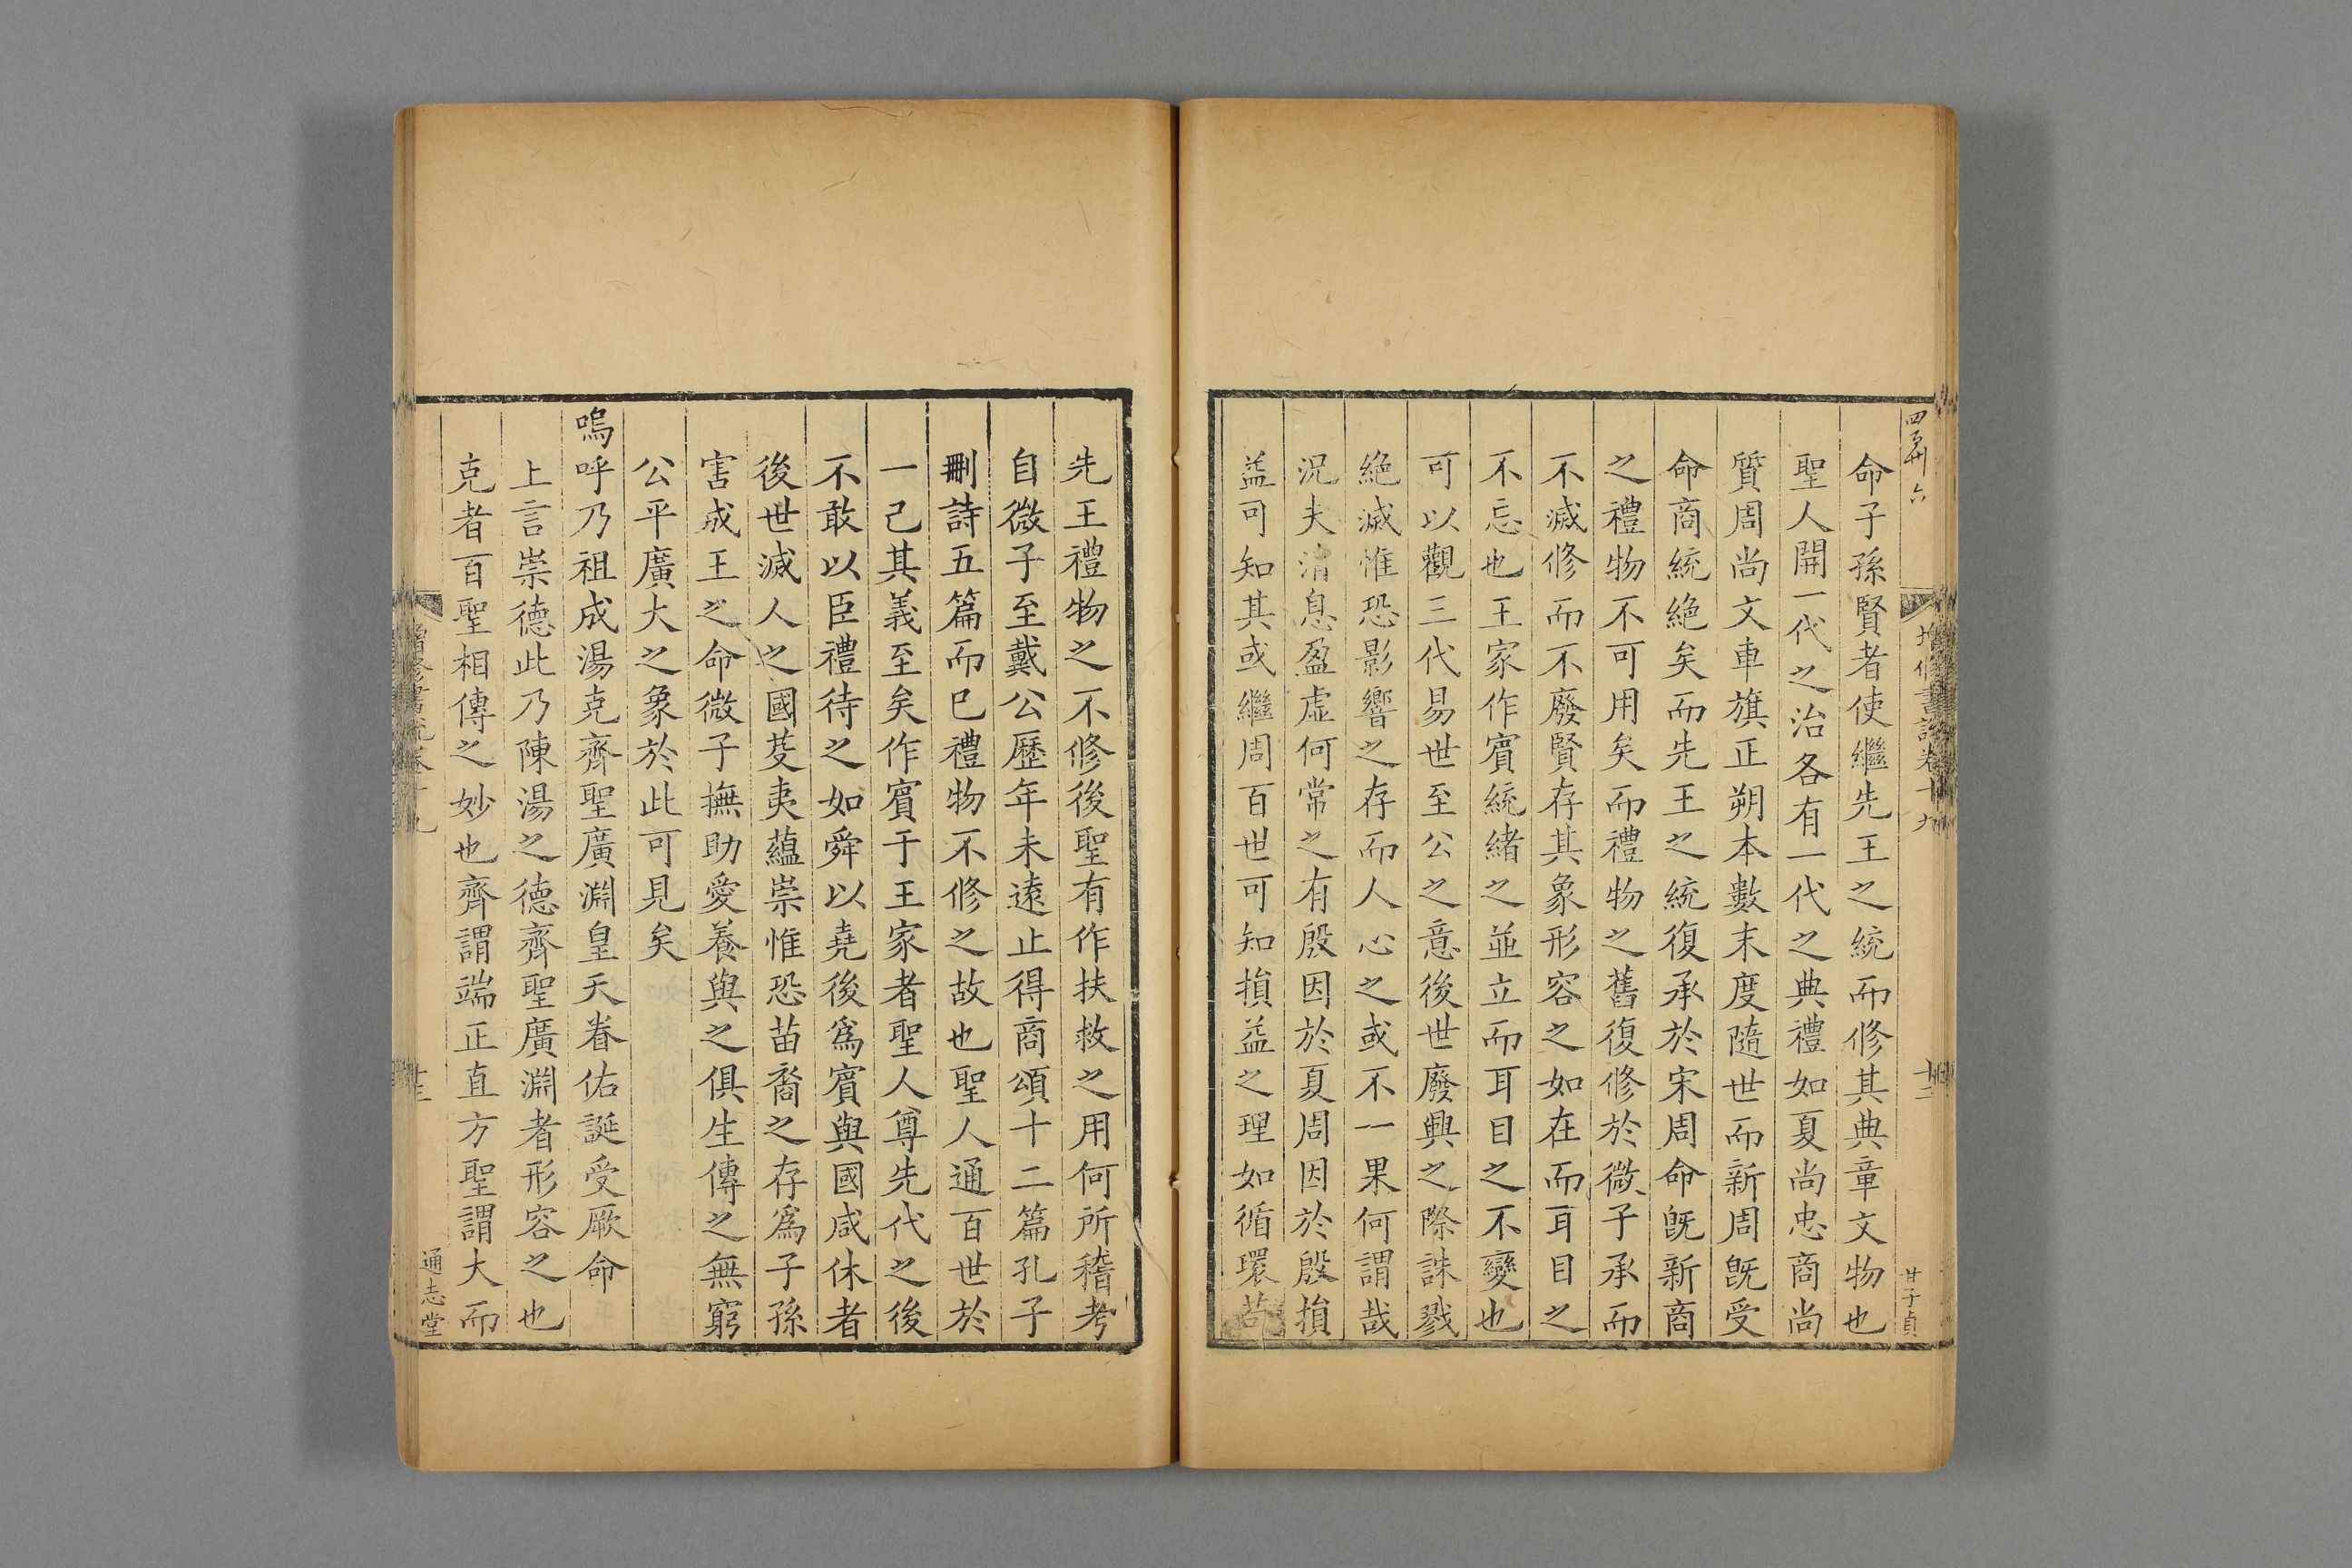 命子孫賢者使繼先王之統而修其典章文物也
聖人開一代之治各有一代之典禮如夏尚忠商尚
質周尚文車旗正朔本數末度隨世而新周旣受
命商統絶矣而先王之統復承於宋周命旣新商
之禮物不可用矣而禮物之舊復修於微子承而
不滅修而不廢賢存其象形容之如在而耳目之
不忘也王家作賓統緒之並立而耳目之不變也
可以觀三代易世至公之意後世廢興之際誅戮
絶滅惟恐影響之存而人心之或不一果何謂哉
況夫消息盈虛何常之有殷因於夏周因於殷損
益可知其或繼周百世可知損益之理如循環苟
先王禮物之不修後聖有作扶救之用何所稽考
自微子至戴公歷年未遠止得商頌十二篇孔子
刪詩五篇而已禮物不修之故也聖人通百世於
一己其義至矣作賓于王家者聖人尊先代之後
不敢以臣禮待之如舜以堯後爲賓與國咸休者
後世滅人之國芟夷蘊崇惟恐苗裔之存爲子孫
害成王之命微子撫助愛養與之俱生傳之無窮
公平廣大之象於此可見矣
嗚呼乃祖成湯克齊聖廣淵皇天眷佑誕受厥命
上言崇德此乃陳湯之德齊聖廣淵者形容之也
克者百聖相傳之妙也齊謂端正直方聖謂大而
增修書說卷十九
通志堂
增修書說卷十九
甘子貞